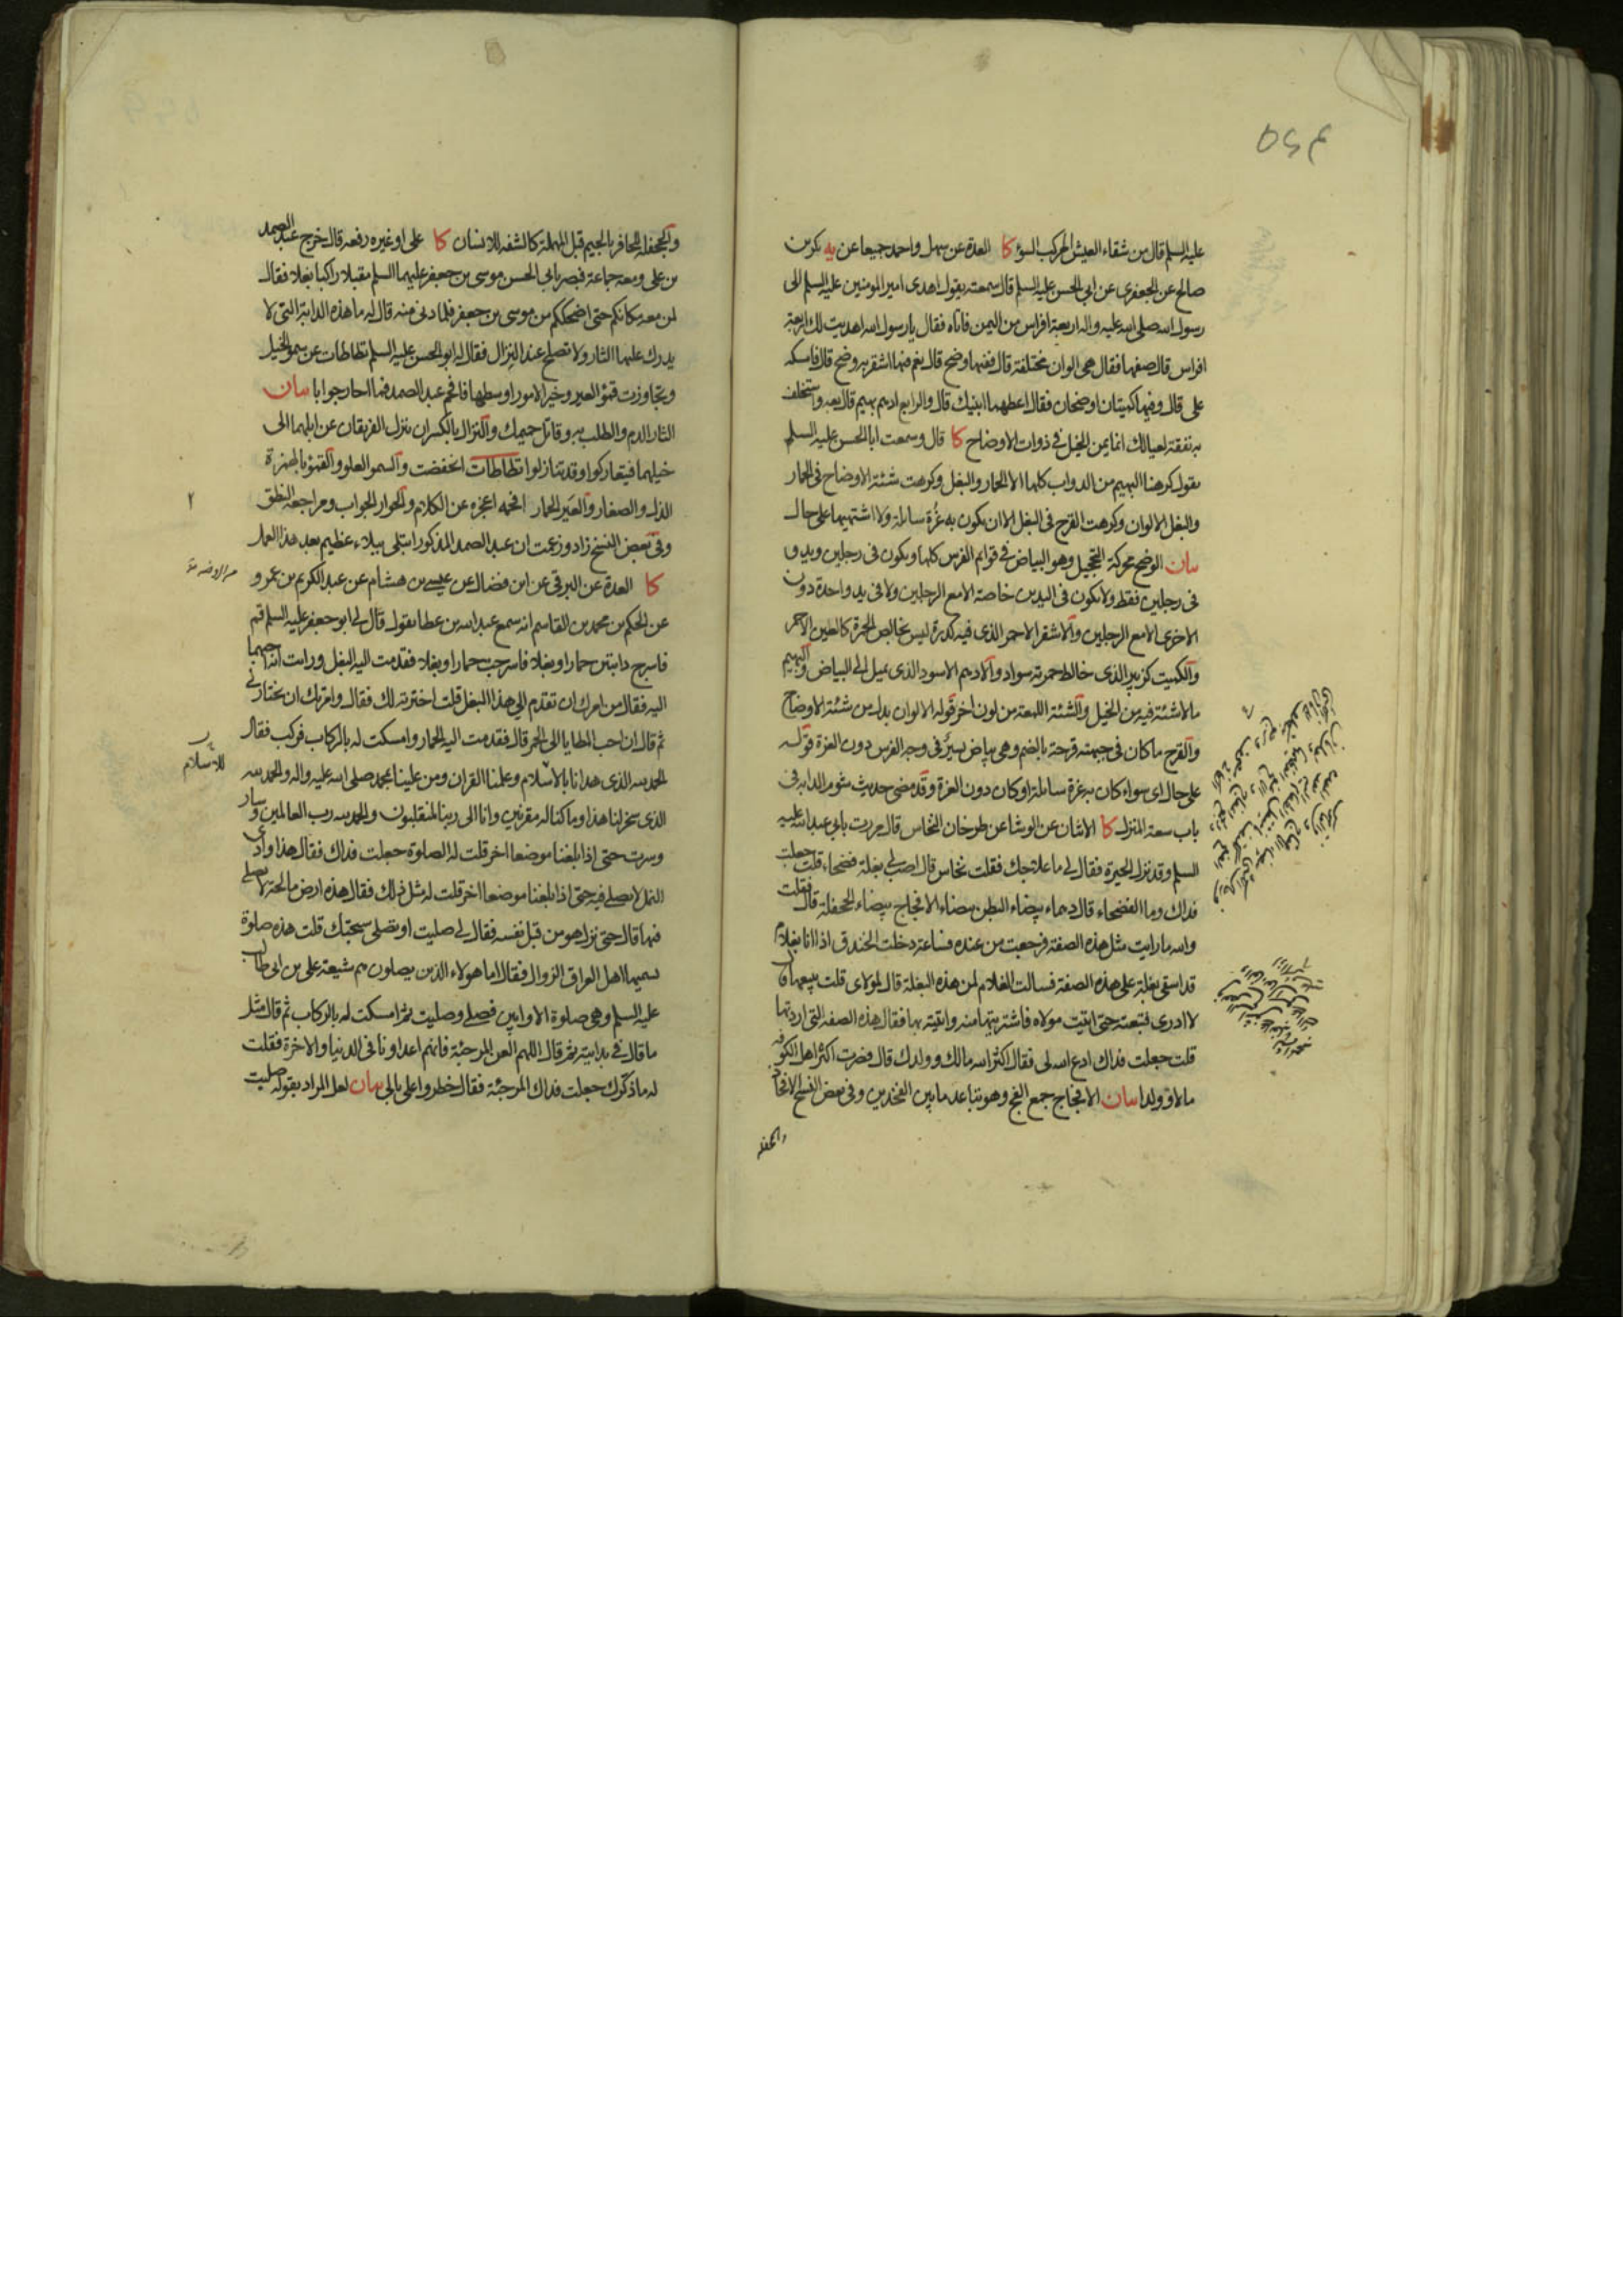 عليه السلم قال من شقاء العيش المركب السوٴ كا العدة عن سهل واحمد جميعا عن يه بكر بن
صالح عن الجعفرى عن ابى الحسن عليه السلم قال سمعته يقول اهدى امير المومنين عليه السلم الى
رسول الله صلى الله عليه واله اربعة افراس من اليمن فاتاه فقال يا رسول الله اهديت لك اربعة
افراس قال صفها فقال هى الوان مختلفة قال ففيها وضح قال نعم فيها اشقر به وضح قال فامسكه
على قال وفيها كميتان اوضحان فقال اعطهما ابنيك قال والرابع ادهم بهيم قال بعه واستخلف
به نفقة لعيالك انما يمن الخيل فى ذوات الاوضاح كا قال وسمعت ابا الحسن عليه السلم
يقول كرهنا البهيم من الدواب كلها الا الحمار والبغل وكرهت شئة الاوضاح فى الحمار
والبغل الالوان وكرهت القرح فى البغل الا ان يكون به غُرة سائلة ولا اشتهيها على حال
بيان الوضح محركة التحجيل وهو البياض فى قوايم الفرس كلها ويكون فى رجلين ويد و
فى رجلين فقط ولا يكون فى اليدين خاصة الا مع الرجلين ولا فى يد واحدة دون
الاخرى الا مع الرجلين والاشقر الاحمر الذى فيه كدرة ليس بخالص الحمرة كالعين الاحمر
والكميت كزبير الذى خالط حمرته سواد والادهم الاسود الذى يميل الى البياض والبهيم
ما لا شئة فيه من الخيل والشئة اللمعة من لون اخر قوله الالوان بدل من شئة الاوضاح
والقرح ما كان فى جبهته قرحة بالضم وهى بياض يسير فى وجه الفرس دون الغرة قوله
على حال اى سواء كان به غرة سائلة او كان دون الغرة وقد مضى حديث شوم الدابه فى
باب سعة المنزل كا الاثنان عن الوشا عن طرخان النخاس قال مررت بابى عبد الله عليه
السلم وقد نزل الحيرة فقال لى ما علاجك فقلت نخاس قال اصب لى بغلة فضحاء قلت جعلت
فداك وما الفضحاء قال دهماء بيضاء البطن بيضاء الافجاج بيضاء الجحفلة قال فقلت
والله ما رايت مثل هذه الصفة فرجعت من عنده فساعة دخلت الخندق اذا انا بغلام
قد اسقى بغلة على هذه الصفة فسالت الغلام لمن هذه البغلة قال لمولاى قلت يبيعها قال
لا ادرى فتبعته حتى اتيت مولاه فاشتريتها منه واتيته بها فقال هذه الصفة التى اردتها
قلت جعلت فداك ادع الله لى فقال اكثر الله مالك وولدك قال فصرت اكثر اهل الكوفه
مالا وولدا بيان الافجاج جمع الفج وهو تباعد ما بين الفخذين وفى بعض النسخ الافحاج
والجحفله
والجحفلة للحافر بالجيم قبل المهملة كالشفه للانسان كا على او غيره رفعه قال خرج عبد الصمد
بن على ومعه جماعة فبصر بابى الحسن موسى بن جعفر عليهما السلم مقبلا راكبا بغلا فقال
لمن معه مكانكم حتى اضحككم من موسى بن جعفر فلما دنى منه قال له ما هذه الدابة التى لا
يدرك عليها الثار ولا تصلح عند النزال فقال له ابو الحسن عليه السلم تطاطات عن سمو الخيل
وتجاوزت قمؤ العير وخير الامور اوسطها فافحم عبد الصمد فما احار جوابا بيان
الثار الدم والطلب به وقاتل حميمك والنزال بالكسر ان ينزل الفريقان عن ابلهما الى
خيلهما فيتعاركوا وقد تنازلوا تطاطات انخفضت والسمو العلو والقمؤ بالهمزة
الذل والصغار والعَير الحمار افحمه اعجزه عن الكلام والحوار الجواب ومراجعة النطق
وفى بعض النسخ زاد وزعمت ان عبد الصمد المذكور ابتلى ببلاء عظيم بعد هذا العمل
كا العدة عن البرقى عن ابن فضال عن عيسى بن هشام عن عبد الكريم بن عمرو
عن الحكم بن محمد بن القاسم انه سمع عبد الله بن عطا يقول قال لى ابو جعفر عليه السلم قم
فاسرج دابتين حمارا وبغلا فاسرجت حمارا وبغلا فقدمت اليه البغل ورايت انه احبهما
اليه فقال من امرك ان تقدم الى هذا البغل قلت اخترته لك فقال وامرتك ان تختار لى
ثم قال ان احب المطايا الى الحمر قال فقدمت اليه الحمار وامسكت له بالركاب فركب فقال
الحمد لله الذى هدانا بالاسلام وعلمنا القران ومن علينا بمحمد صلى الله عليه واله والحمد لله
للاسلام
الذى سخر لنا هذا وما كنا له مقرنين وانا الى ربنا لمنقلبون والحمد لله رب العالمين وسار
وسرت حتى اذا بلغنا موضعا اخر قلت له الصلوة جعلت فداك فقال هذا وادى
النمل لا يصلى فيه حتى اذا بلغنا موضعا اخر قلت له مثل ذلك فقال هذه ارض مالحة لا يصلى
فيها قال حتى نزل هو من قبل نفسه فقال لى صليت او تصلى سبحتك قلت هذه صلوة
يسميها اهل العراق الزوال فقال اما هولاء الذين يصلون هم شيعة على بن ابى طالب
عليه السلم وهى صلوة الاوابين فصلى وصليت ثم امسكت له بالركاب ثم قال مثل
ما قال فى بدايته ثم قال اللهم العن المرجئة فانهم اعداونا فى الدنيا والاخرة فقلت
له ما ذكرك جعلت فداك المرجئة فقال خطروا على بالى بيان لعل المراد بقوله صليت